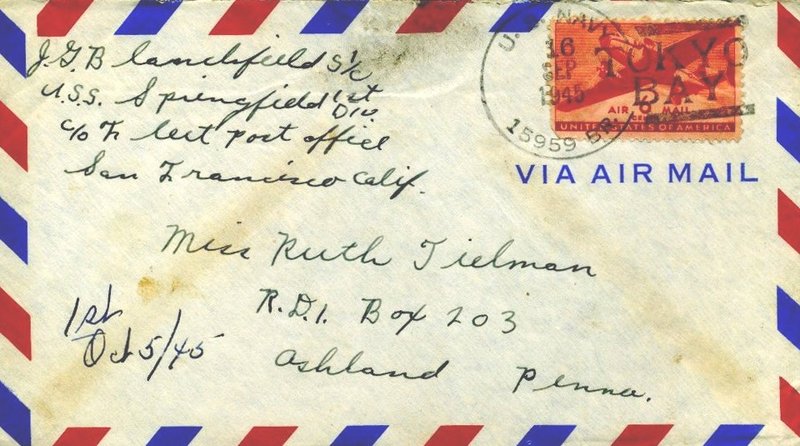 J.G. Blanchfield S 1/c
U.S.S. Springfield 1st Div.
c/o Fleet Post Office
San Francisco Calif.
U.S. NAVY
16
SEP
1945
15959 BR.
TOKYO
BAY
AIR MAIL
6
CENTS
UNITED STATES OF AMERICA
VIA AIR MAIL
Miss Ruth Tielman
R.D.1. Box 203
Ashland Penna.
1st
Oct 5/45